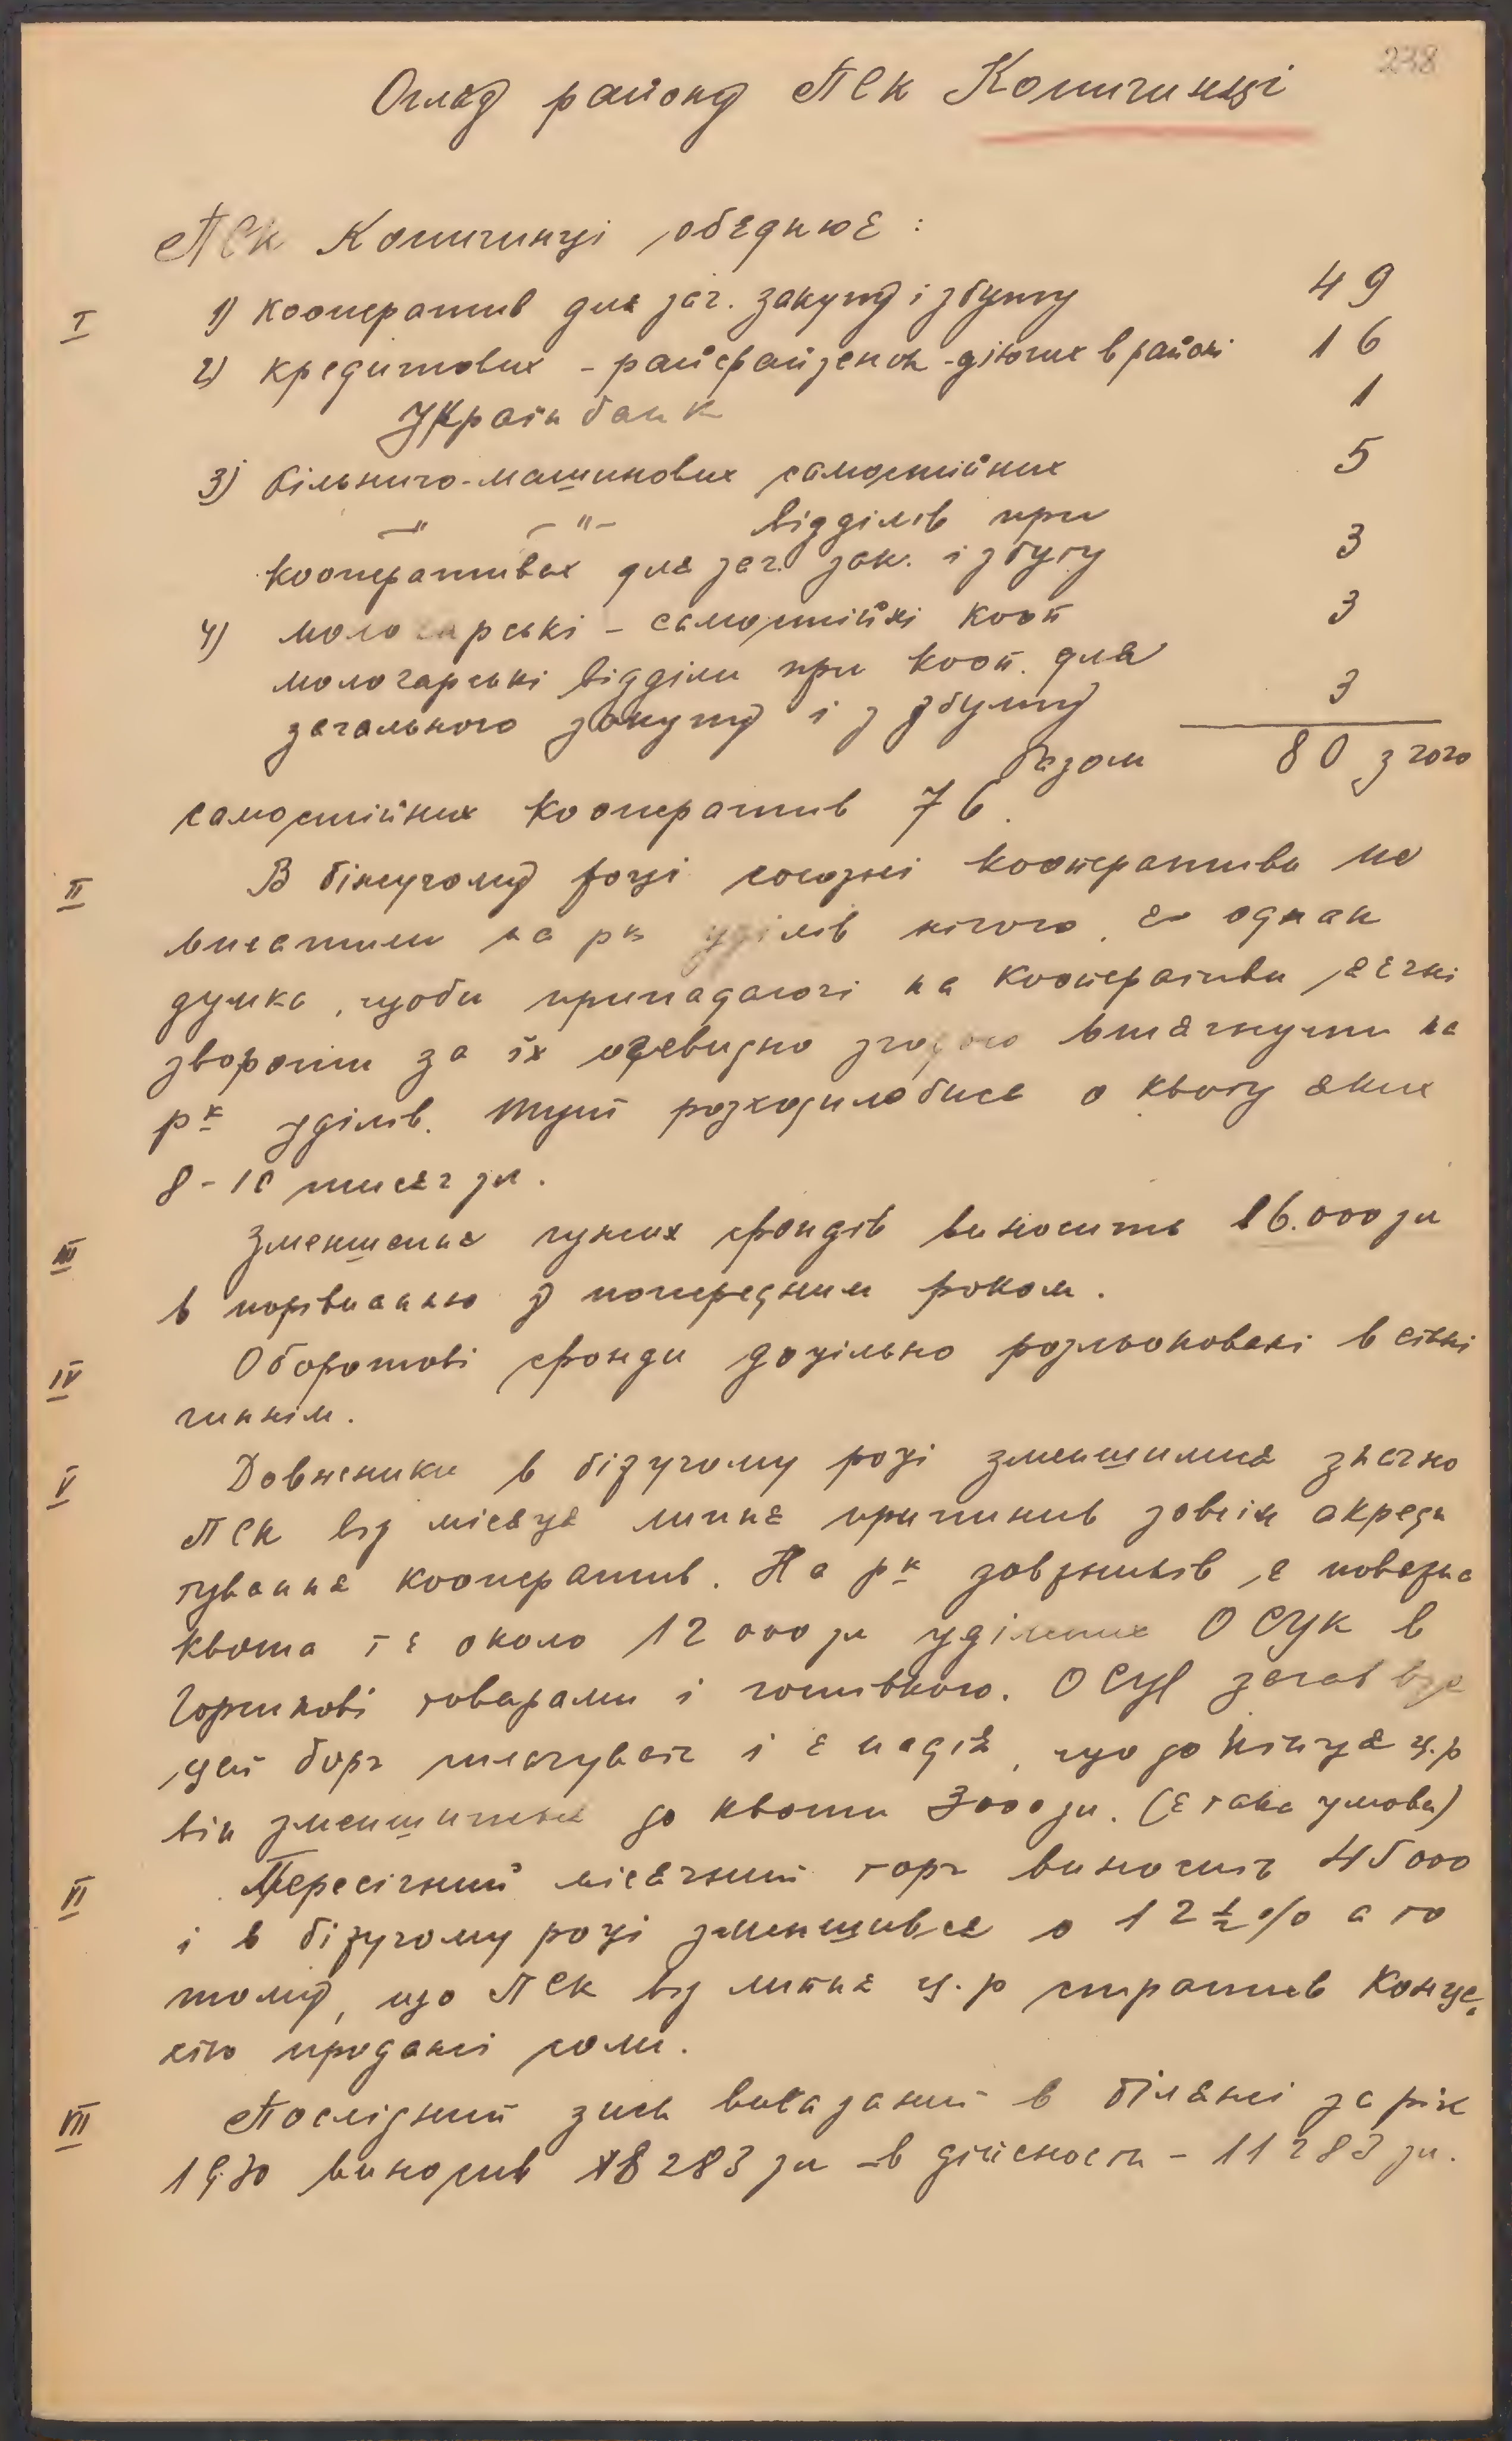 238
Огляд району ПСК Копичинці
ПСК Копичинці обєднює :
I 1) кооператив для заг. закупу і збуту 49
2) кредитових – райфайзенок – діючих в районі 16
Українбанк 1
3) більничо-машинових самостійних 5
—"— —"— відділів при
кооперативах для заг. зак. і збуту 3
4) молочарські – самостійні кооп 3
молочарські відділи при кооп. для
загального закупу і з збуту 3
Разом 80 з того
самостійних кооператив 76.
II В біжучому році союзні кооперативи не
вплатили на рк уділів нічого, є однак
думка, щоби припадаючі на кооперативи
звороти за їх очевидно згодою втягнути на
рк уділів. Тут розходилобися о квоту яких
8–10 тисяч зл.
III Зменшення чужих фондів виносить 16.000 зл
в порівнанню з попередним роком.
IV Оборотові фонди доцільно розльоковані в
чиннім.
V Довжники в біжучому році зменшилися значно
ПСК від місяця липня припинив зовсім акреди
тування кооператив. На рк довжників є поважна
квота се около 12 000 зл уділених ОСУК в
товарами і готівкою. ОСУК зачав вже
цей борг сплачувати і є надія, що до кінця ц.р
він зменшиться до квоти 3000 зл. (є така умова)
VI Пересічний місячний торг виносить 45000
і в біжучому році зменшився о 12 ½ % а то
тому, що ПСК від липня ц.р стратив Конце,
сію продажі соли.
VII Послідний зиск виказаний в білянсі за рік
1930 виносив 18283 зл – в дійсности – 11283 зл.